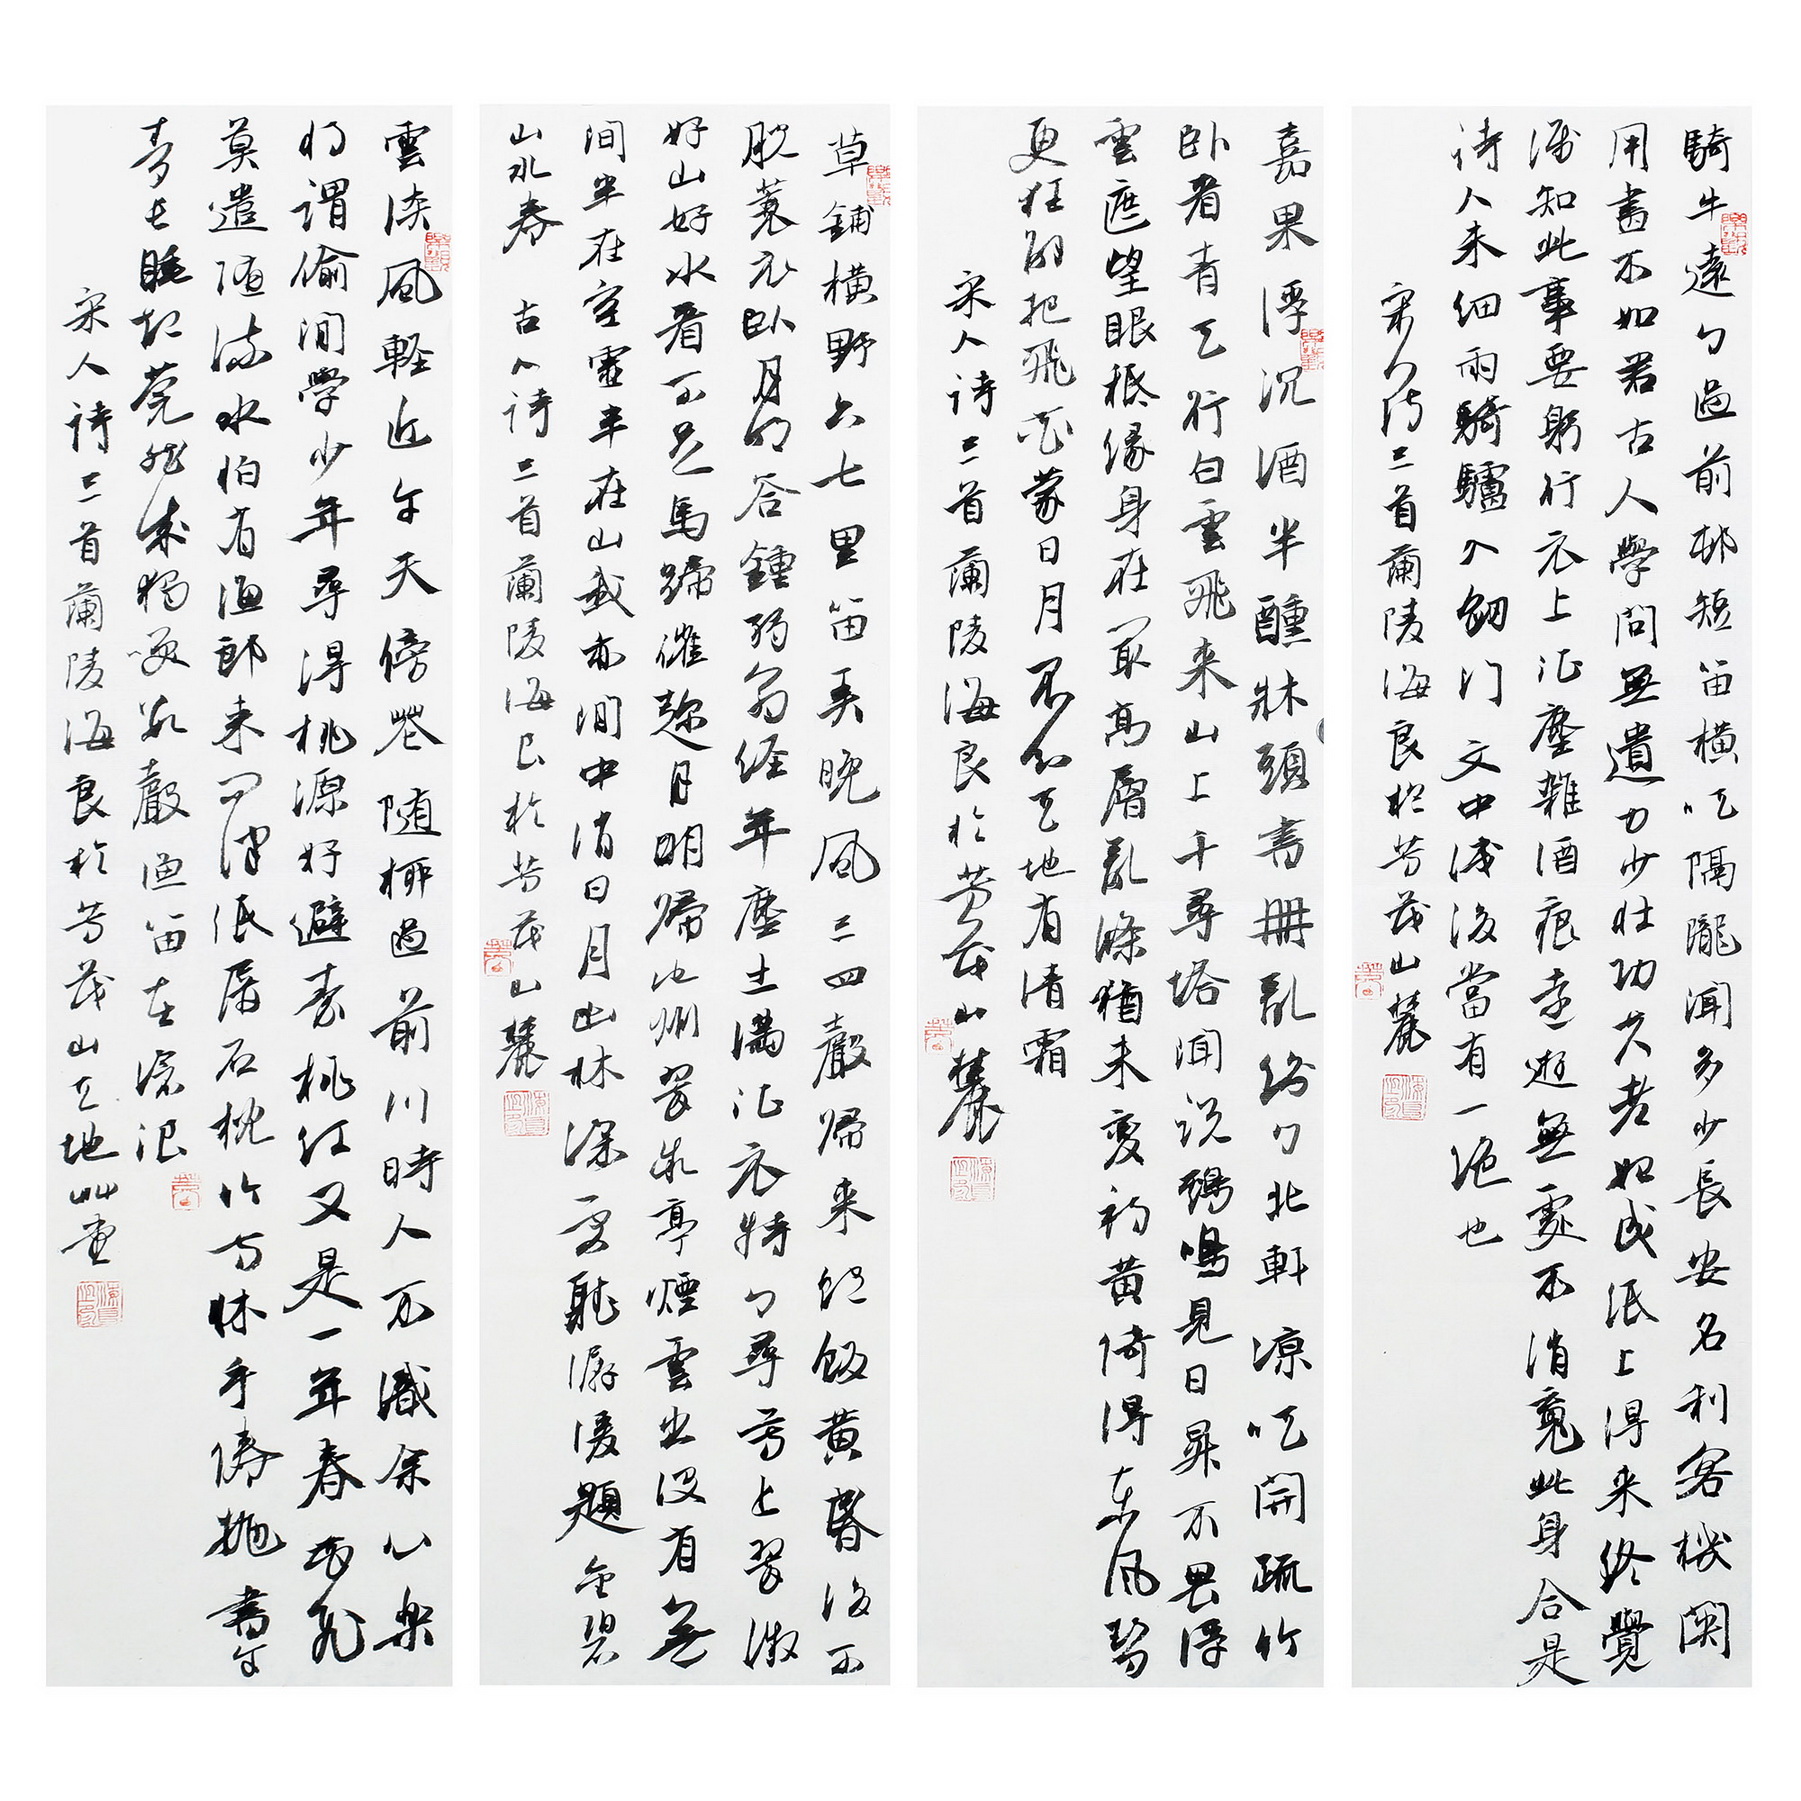 騎牛遠々過前邨短笛橫吹隔隴聞多少長安名利客機關
用盡不如君古人學問無遺力少壯功夫老始成紙上得來終覺
淺知此事要躬行衣上征塵雜酒痕遠遊無處不消魂此身合是
詩人未細雨騎驢入劒門 文中淺後當有一絕也
宋人詩三首蘭陵海良於芳茂山麓
嘉果浮沉酒半醺牀頭書冊亂紛々北軒涼吹開疏竹
臥看青天行白雲飛來山上千尋塔聞説鷄鳴見日昇不畏浮
雲遮望眼秪緣身在最高層亂條猶未變初黃倚得東風勢
更狂解把飛花蒙日月不知天地有清霜
宋人詩三首蘭陵海良於芳茂山麓
草鋪橫野六七里笛弄晚風三四聲歸來飽飯黃昏後不
脫蓑衣臥月明答鍾弱翁經年塵土滿征衣特々尋芳上翠微
好山好水看不足馬蹄催趁月明歸池州翠微亭煙雲出沒有無
間半在空虛半在山我亦閒中消日月幽林深處聽潺湲題金碧
山水卷 古人詩三首蘭陵海良於芳茂山麓
雲淡風輕近午天傍花隨柳過前川時人不識余心樂
將謂偷閒學少年尋得桃源好避秦桃紅又是一年春花飛
莫遣隨流水怕有漁郎來問津紙屏石枕竹方牀手倦拋書午
夢長睡起莞然成獨笑數聲漁笛在滄浪
宋人詩三首蘭陵海良於芳茂山天地艸堂